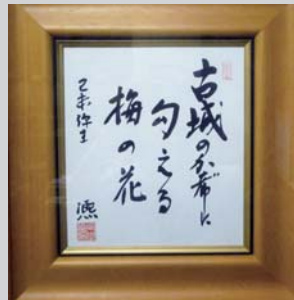 古城のかげに
匂える
梅の花
乙未弥生